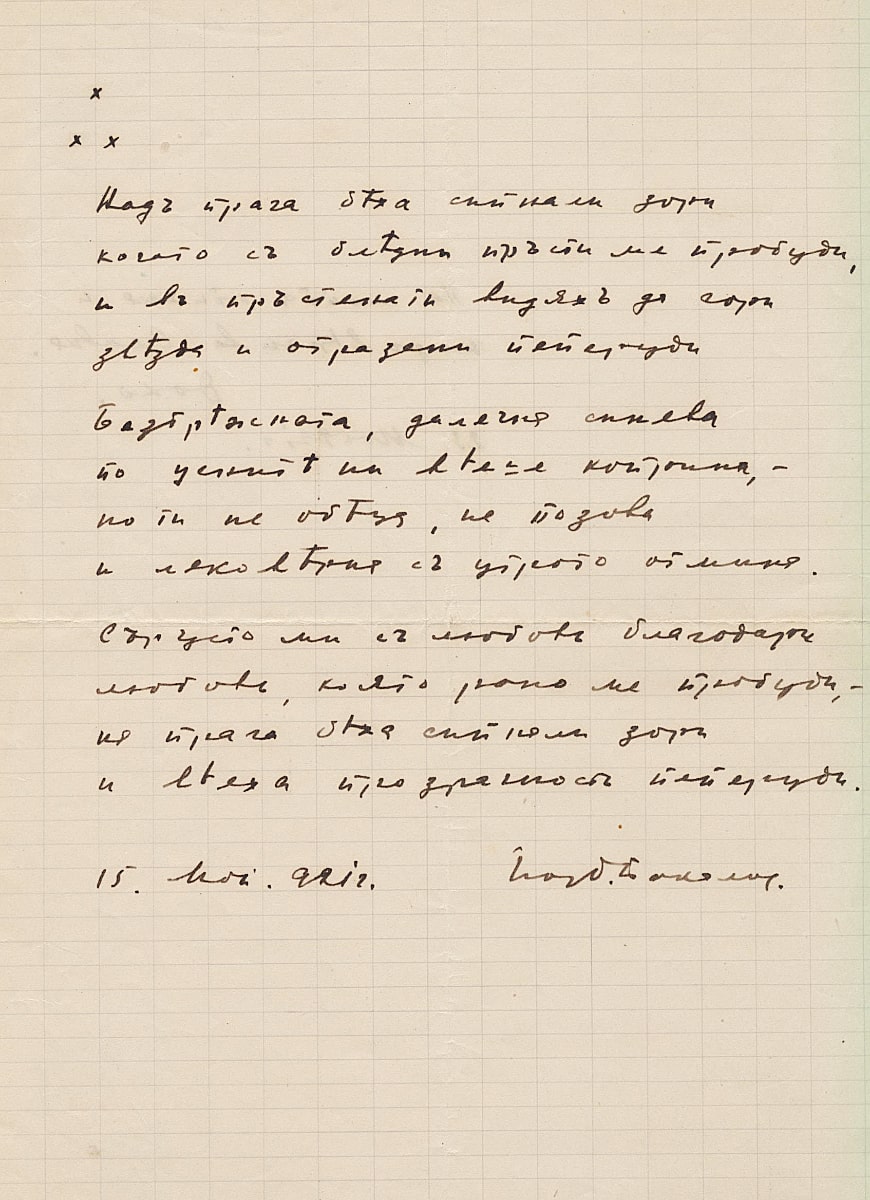 x
x x
Надъ прага бѣха снпнали зори
когато съ блѣдни пръсти ме пробуди,
и въ пръстенъти видяхъ да гори
звѣзда и отразени пеперуди
Безбрѣжсната, далечна синева
по устнитѣ ни вѣеше коприна, –
но ти не обѣща, не позова
и лековѣрна съ утрото отмина.
Сърдцето ми съ любовь благодари
любовь, която рано ме пробуди, –
на прага бѣха снпнали зори
и вѣеха прозрачность пеперуди.
15. Май. 921г.